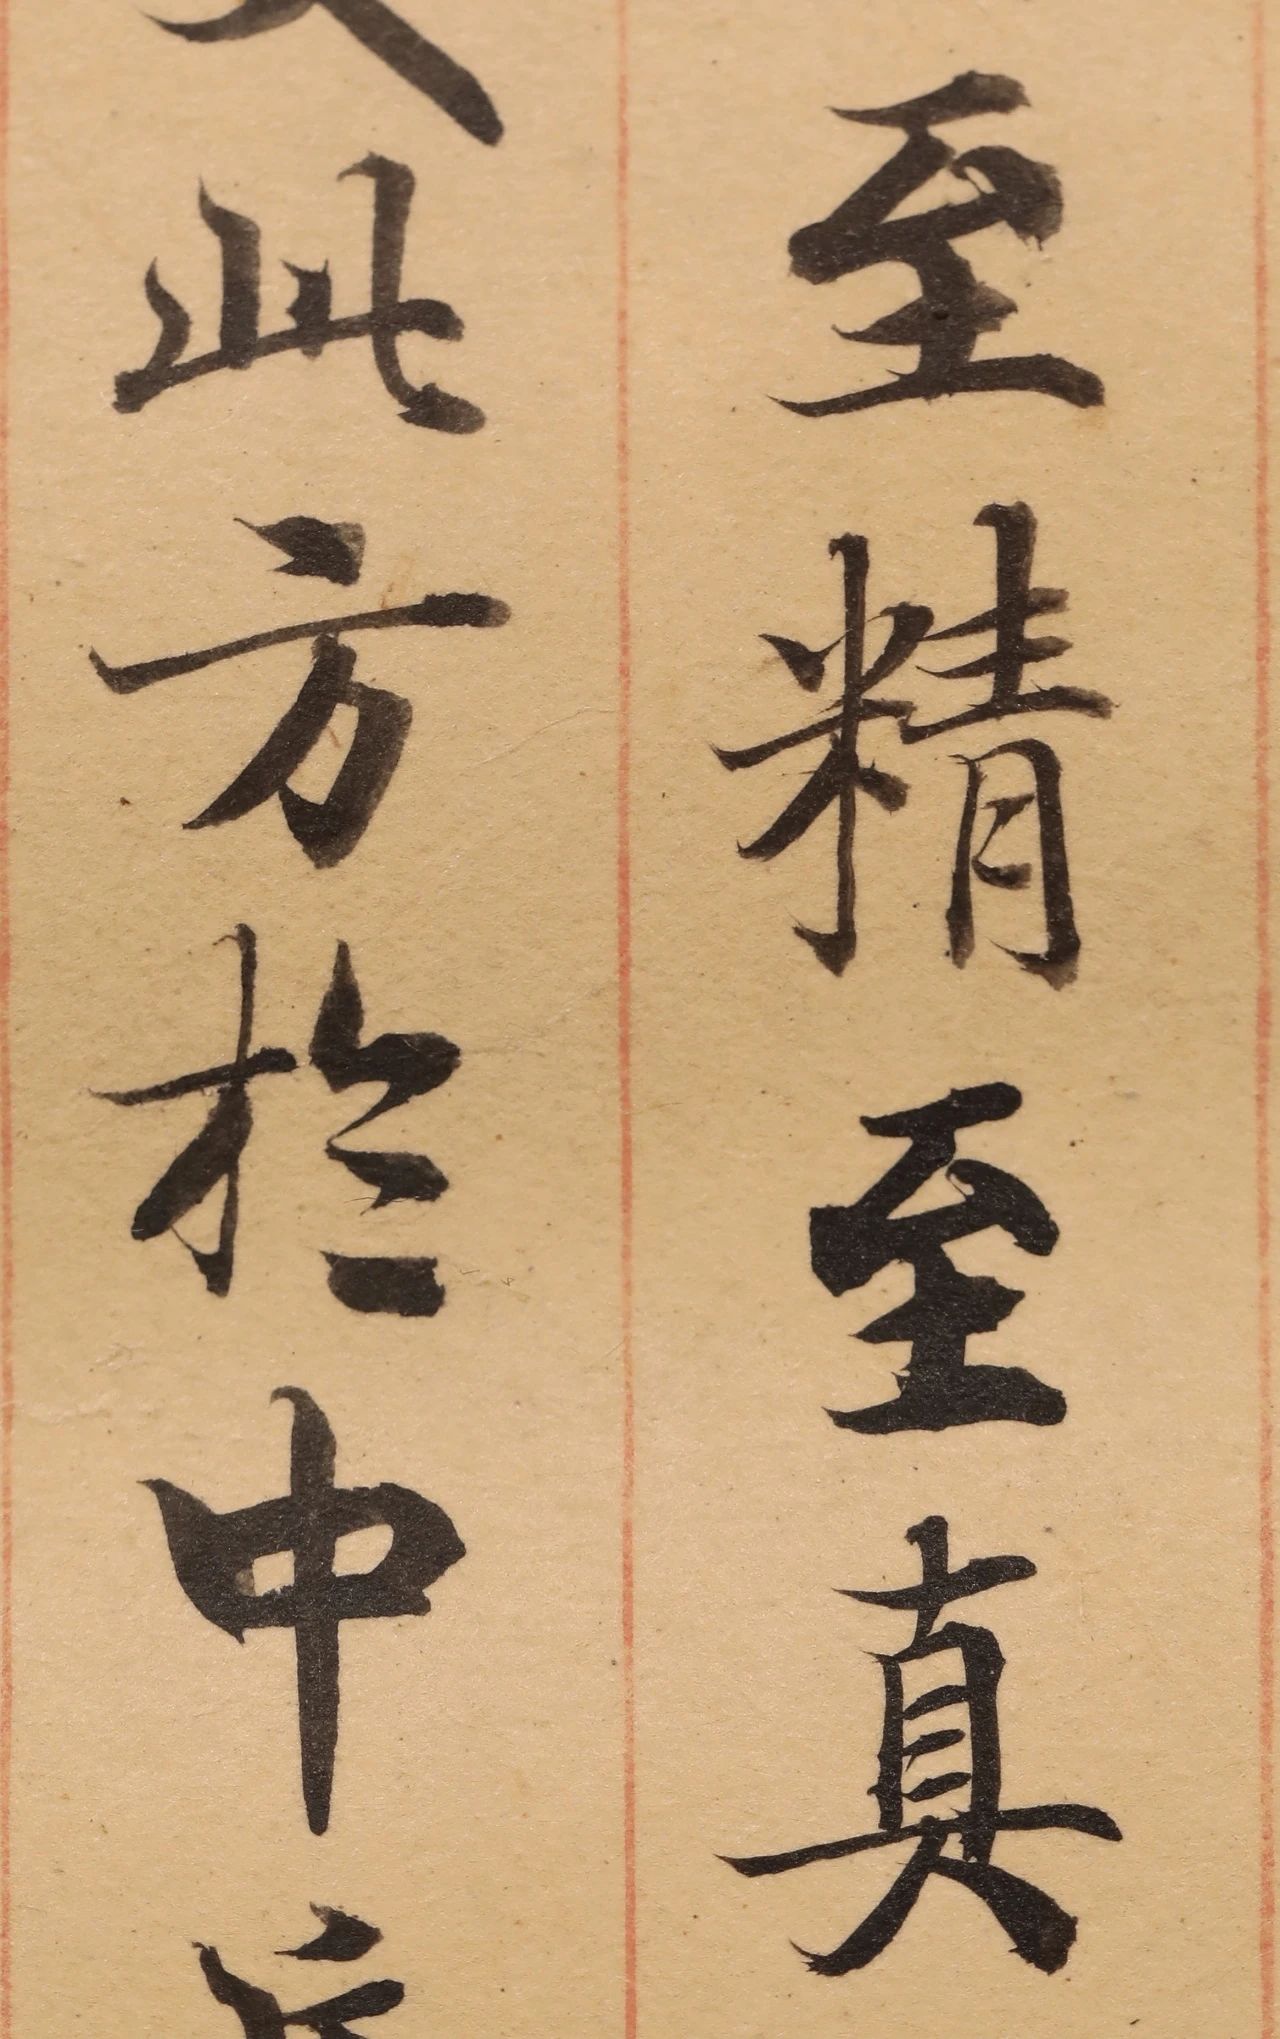 至精至真
此方於中